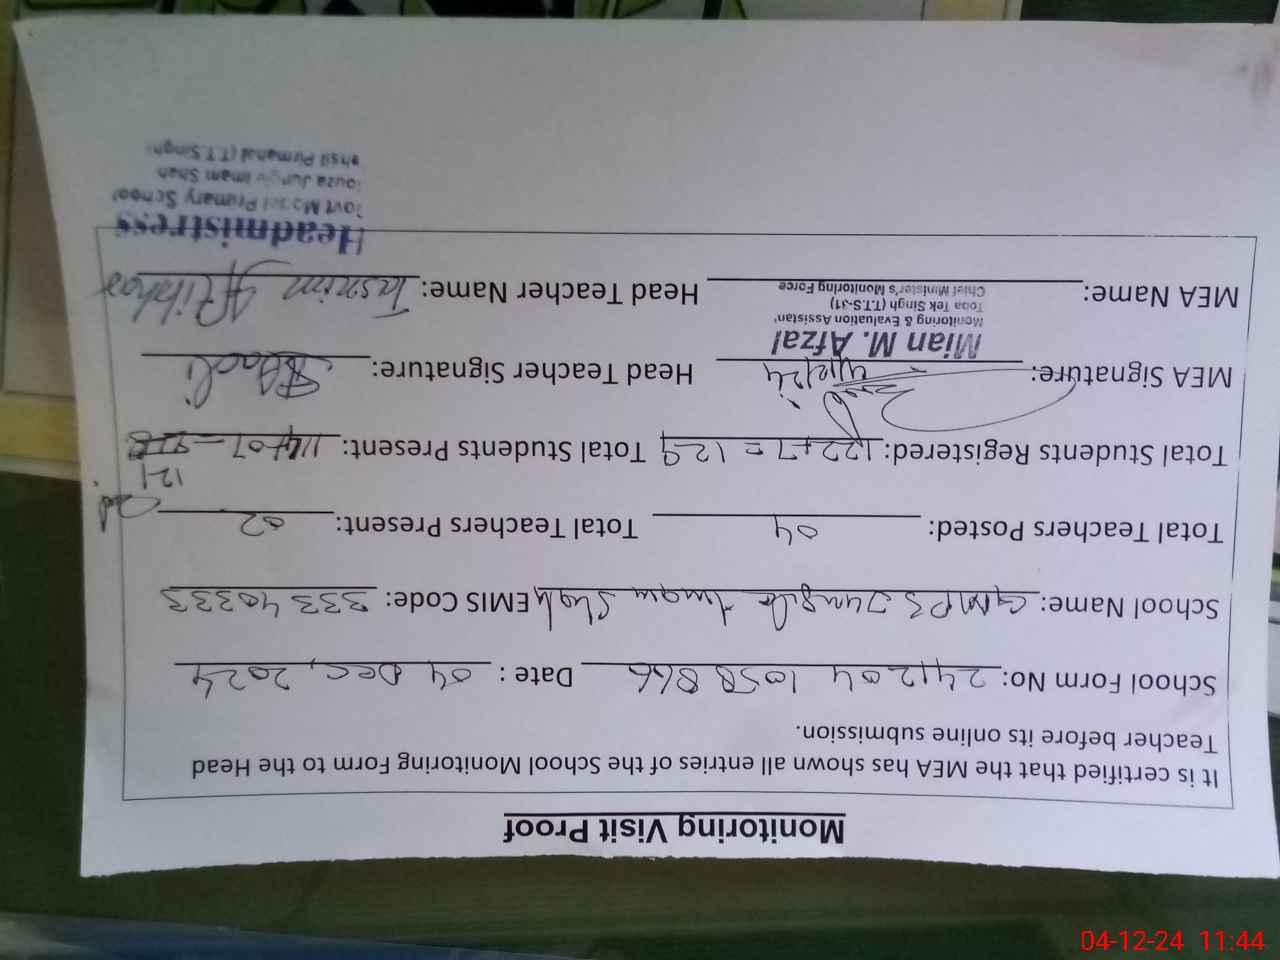 Monitoring Visit Proof
It is certified that the MEA has shown all entries of the School Monitoring Form to the Head
Teacher before its online submission.
School Form No: 241204 1058 866 Date : 04 Dec, 2024
School Name: GMPS Jungle Imam Shah EMIS Code: 33340333
Total Teachers Posted: 04 Total Teachers Present: 02
Total Students Registered: 122+7 = 129 Total Students Present: 114+07 =
121
MEA Signature: 4/12/24 Head Teacher Signature:
Mian M. Afzal
Monitoring & Evaluation Assistan
Toba Tek Singh (T.T.S-31)
Chief Minister's Monitoring Force
MEA Name: Head Teacher Name: Tasnim
Headmistress
Govt Model Primary School
ouza Jungle Imam Shah
ehsil Pirmahal (T.T.Singh)
04-12-24 11:44